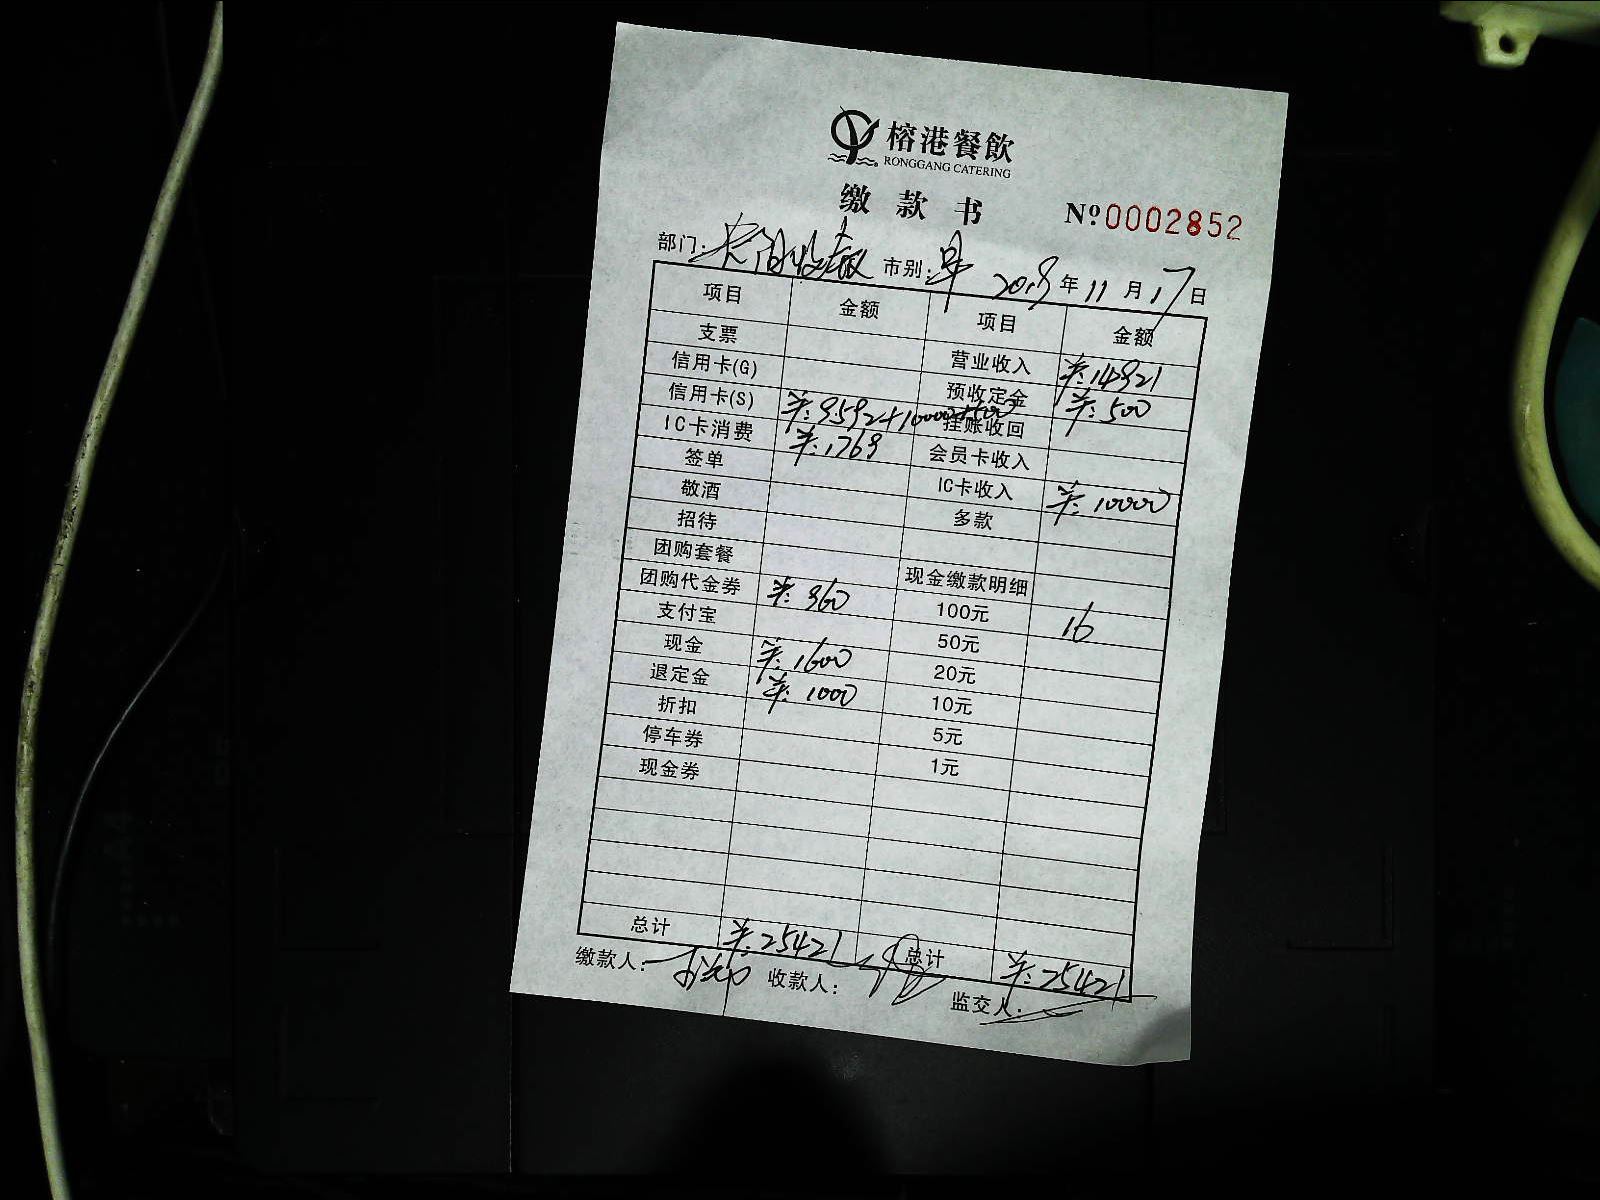 榕港餐飲
RONGGANG CATERING
缴款书 Nº0002852
部门: 市别: 早 2019年11月17日
项目 金额 项目 金额
支票 营业收入 ¥:14921
信用卡(G) 预收定金 ¥:500
信用卡(S) ¥:9592+10000+500 挂账收回
IC卡消费 ¥:1769 会员卡收入
签单 IC卡收入 ¥:10000
敬酒 多款
招待
团购套餐 现金缴款明细
团购代金券 ¥:960 100元 16
支付宝 50元
现金 ¥:1600 20元
退定金 ¥:1000 10元
折扣 5元
停车券 1元
现金券
总计 ¥:25421 总计 ¥:25421
缴款人: 收款人: 监交人: